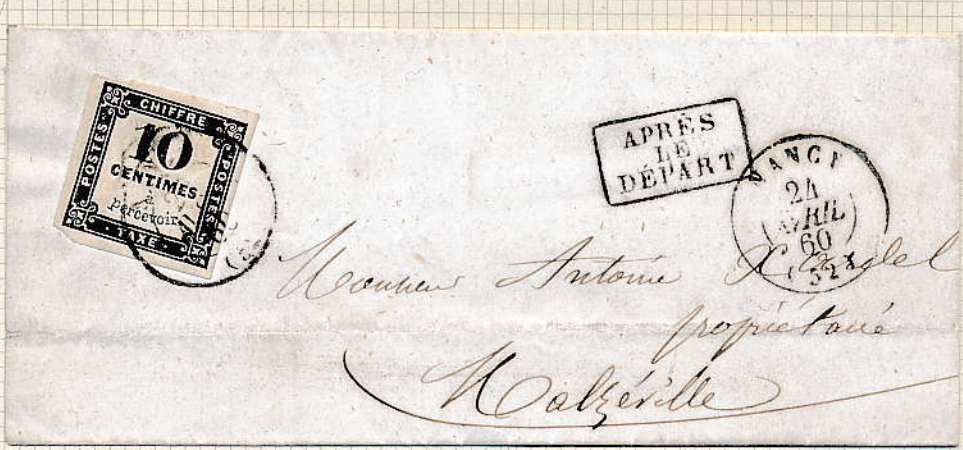 CHIFFRE
POSTES
10
CENTIMES
à
percevoir
POSTES
TAXE
APRÈS
LE
DÉPART
NANCY
24
AVRIL
60
Monsieur Antoine
propriétaire
Malzéville